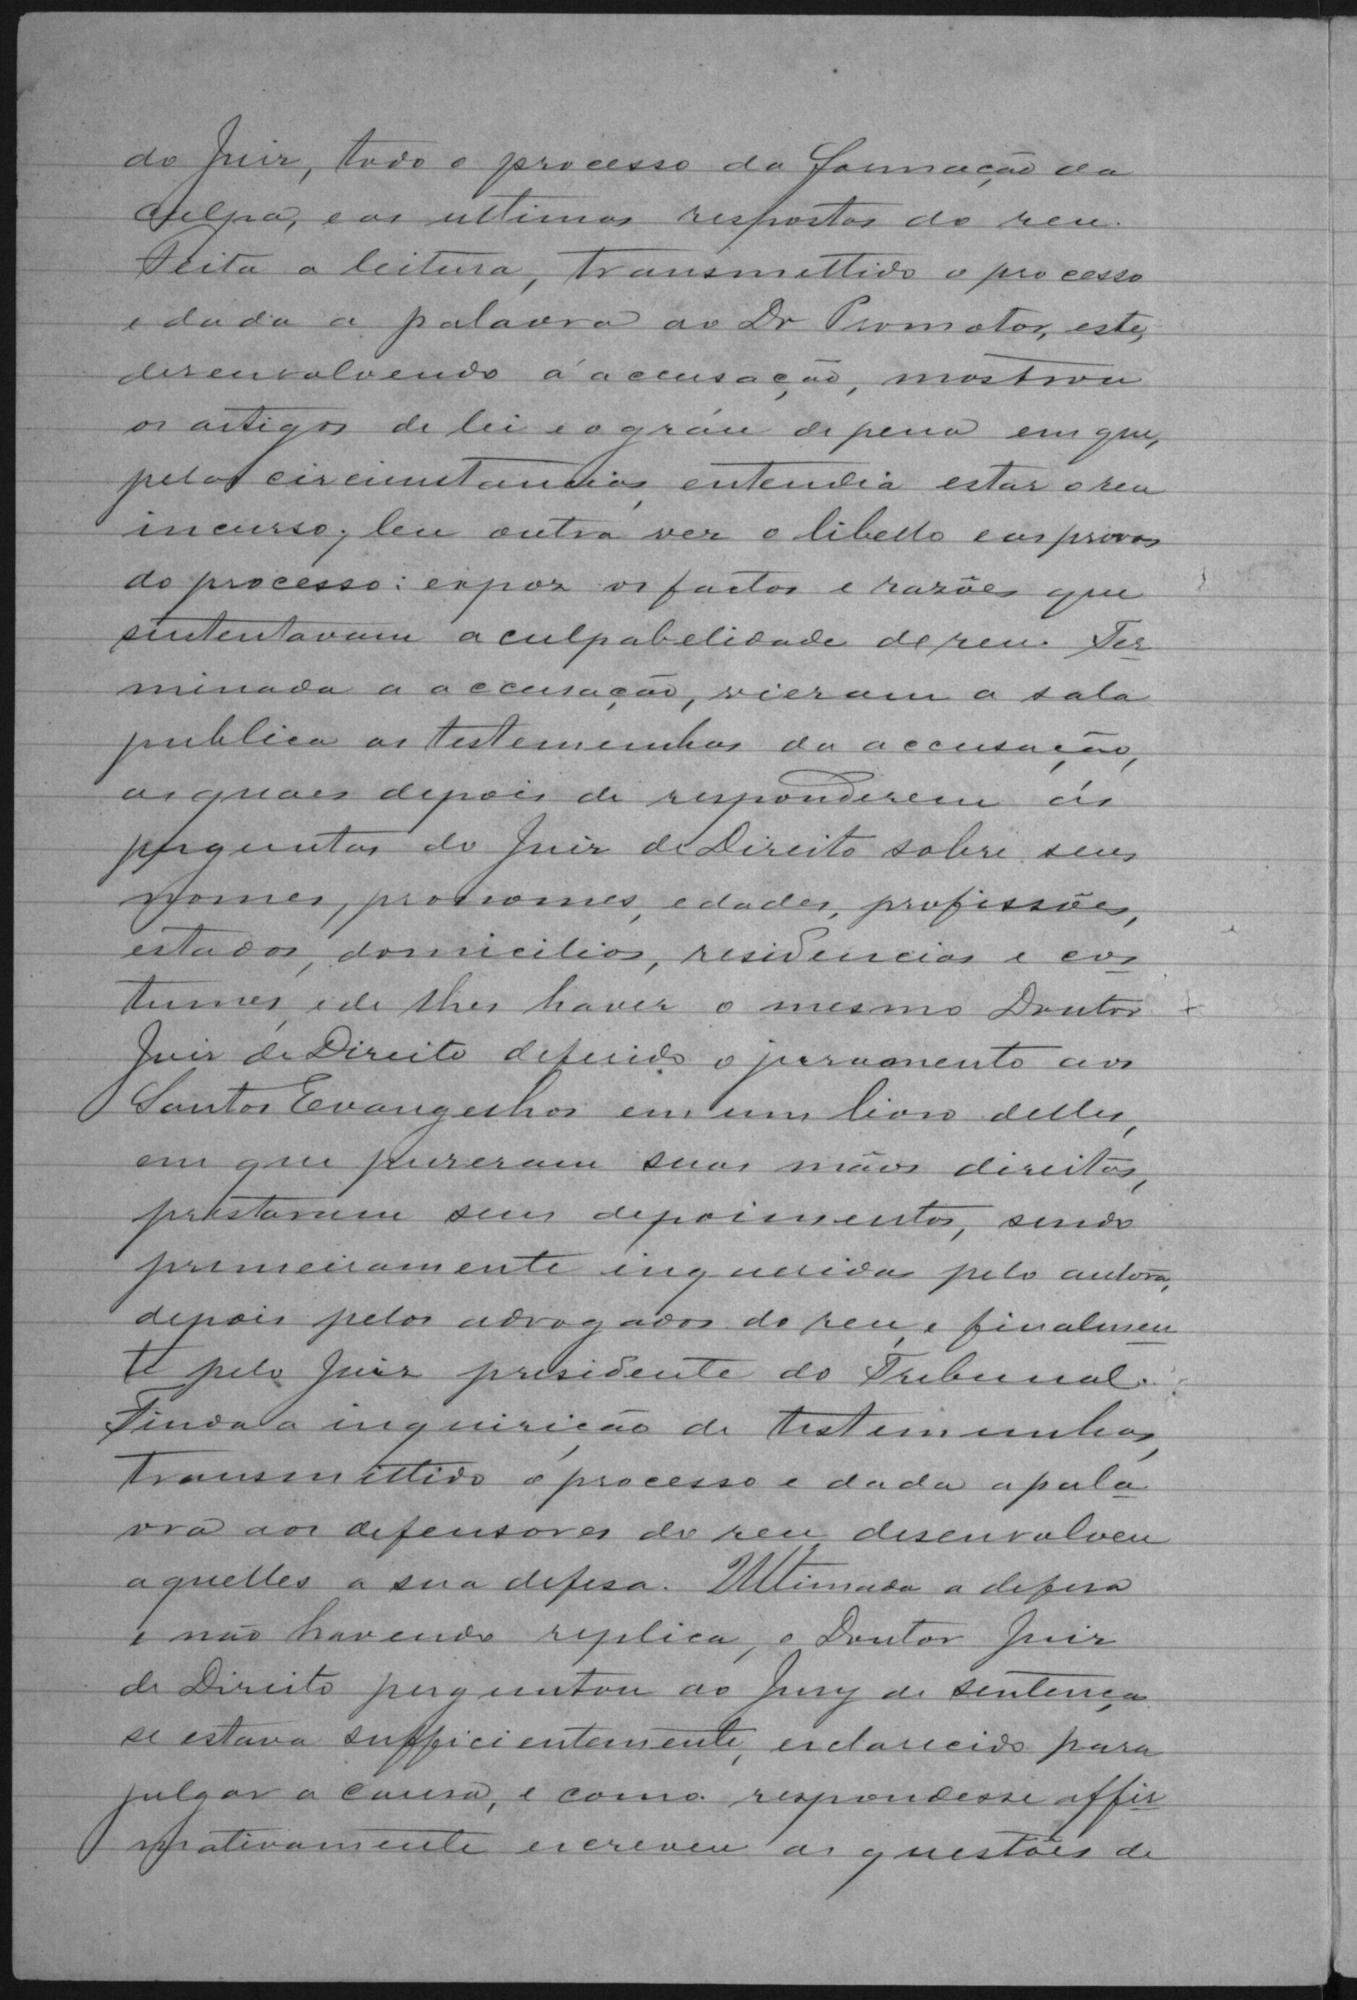 do Juiz, todo o processo da formação da
culpa, e as ultimas respostas do reu.
Feita a leitura, transmettido o processo
e dada a palavra ao Dr Promotor, este,
desenvolvendo a accusação, mostrou
os artigos de lei e o gráu de pena em que,
pelas circumstancias, entendia estar o reu
incurso; leu outra vez o libello e as provas
do processo: expoz os factos e razões que
sustentavam a culpabelidade do reu. Ter-
minada a accusação, vieram a sala
publica as testemunhas da accusação,
as quaes depois de responderem ás
perguntas do Juiz de Direito sobre seus
nomes, pronomes, edades, profissões,
estados, domicilios, residencias e cos-
tumes, e de lhes haver o mesmo Doutor
Juiz de Direito deferido o juramento aos
Santos Evangelhos em um livro delles,
em que puzeram suas mãos direitas,
prestaram seus depoimentos, sendo
primeiramente inqueridas pelo autora,
depois pelos advogados do reu, e finalmen-
te pelo Juiz presidente do Tribunal.
Finda a inquirição de testemunhas,
transmittido o processo e dada a pala-
vra aos defensores do reu, desenvolveu
aquelles a sua defesa. Ultimada a defesa
e não havendo replica, o Doutor Juiz
de Direito perguntou ao Jury de sentença
se estava sufficientemente, esclarecido para
julgar a causa, e como respondesse affir-
mativamente escreveu as questões de